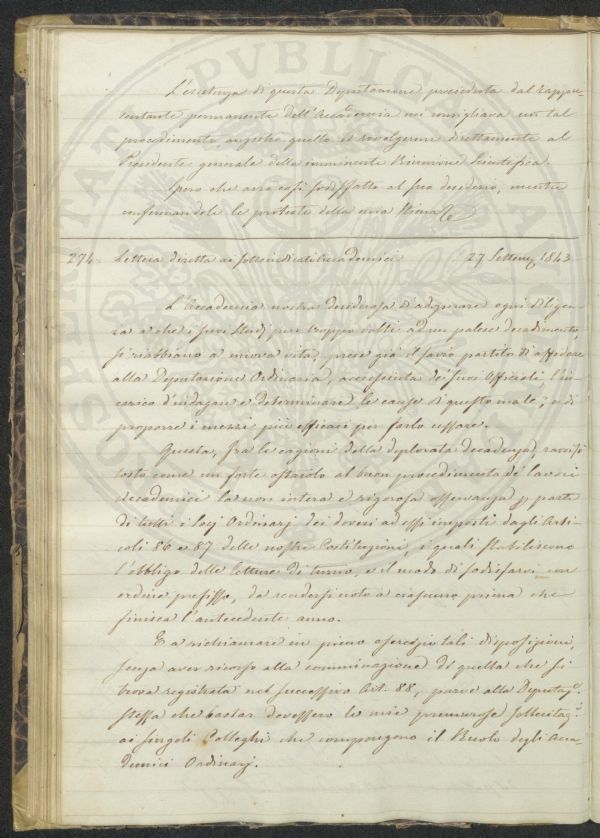 L'esistenza di questa Deputazione preceduta dal rappre-
sentante permanente dell'Accademia ne consigliava un tal
procedimento anzichè quello di rivolgermi direttamente al
Presidente generale della imminente Riunione Scientifica.
Spero che avrò così sodisfatto al suo desiderio, mentre
confermandole le proteste della mia stima
274. Lettera diretta ai sottoindicati Accademici 27 Settembre 1843
L'Accademia nostra desiderosa d'adoperare ogni diligen-
za a che i suoi studj pur troppo volti ad un palese decadimento,
si riabbiano a nuova vita, prese già il savio partito di affidare
alla Deputazione Ordinaria, accresciuta dei suoi Officiali l'in-
carico d'indagare e determinare le cause di questo male, e di
proporre i mezzi più efficaci per farlo cessare.
Questa, fra le cagioni della deplorata decadenza, ravvisò
tosto come un forte ostacolo al buon procedimento de' lavori
Accademici la non intera e rigorosa osservanza p. parte
di tutti i Socj Ordinarj dei doveri ad essi imposti dagli Arti-
coli 86 e 87 delle nostre Costituzioni, i quali stabiliscono
l'obbligo delle letture di turno, e il modo di sodisfarvi con
ordine prefisso, da rendersi noto a ciascuno prima che
finisca l'antecedente anno.
E a richiamare in pieno esercizio tali disposizioni,
senza aver ricorso alla comminazione di quella che si
trova registrata nel successivo Art. 88, parve alla Deputaz.e
stessa che bastar dovessero le mie premurose sollecitaz.i
ai singoli Colleghi che compongono il Ruolo degli Acca-
demici Ordinarj.
PVBLICA